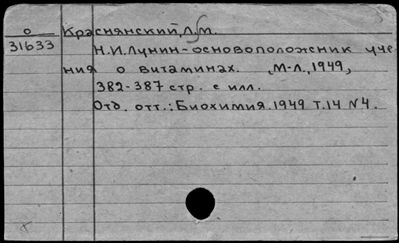 О Краснянский, Л.М.
31633 Н.И.Лунин - основоположник уче
ния о витаминах. М-Л., 1949,
382-387 стр. с илл.
Отд. отт.: Биохимия. 1949 Т.14 N4.